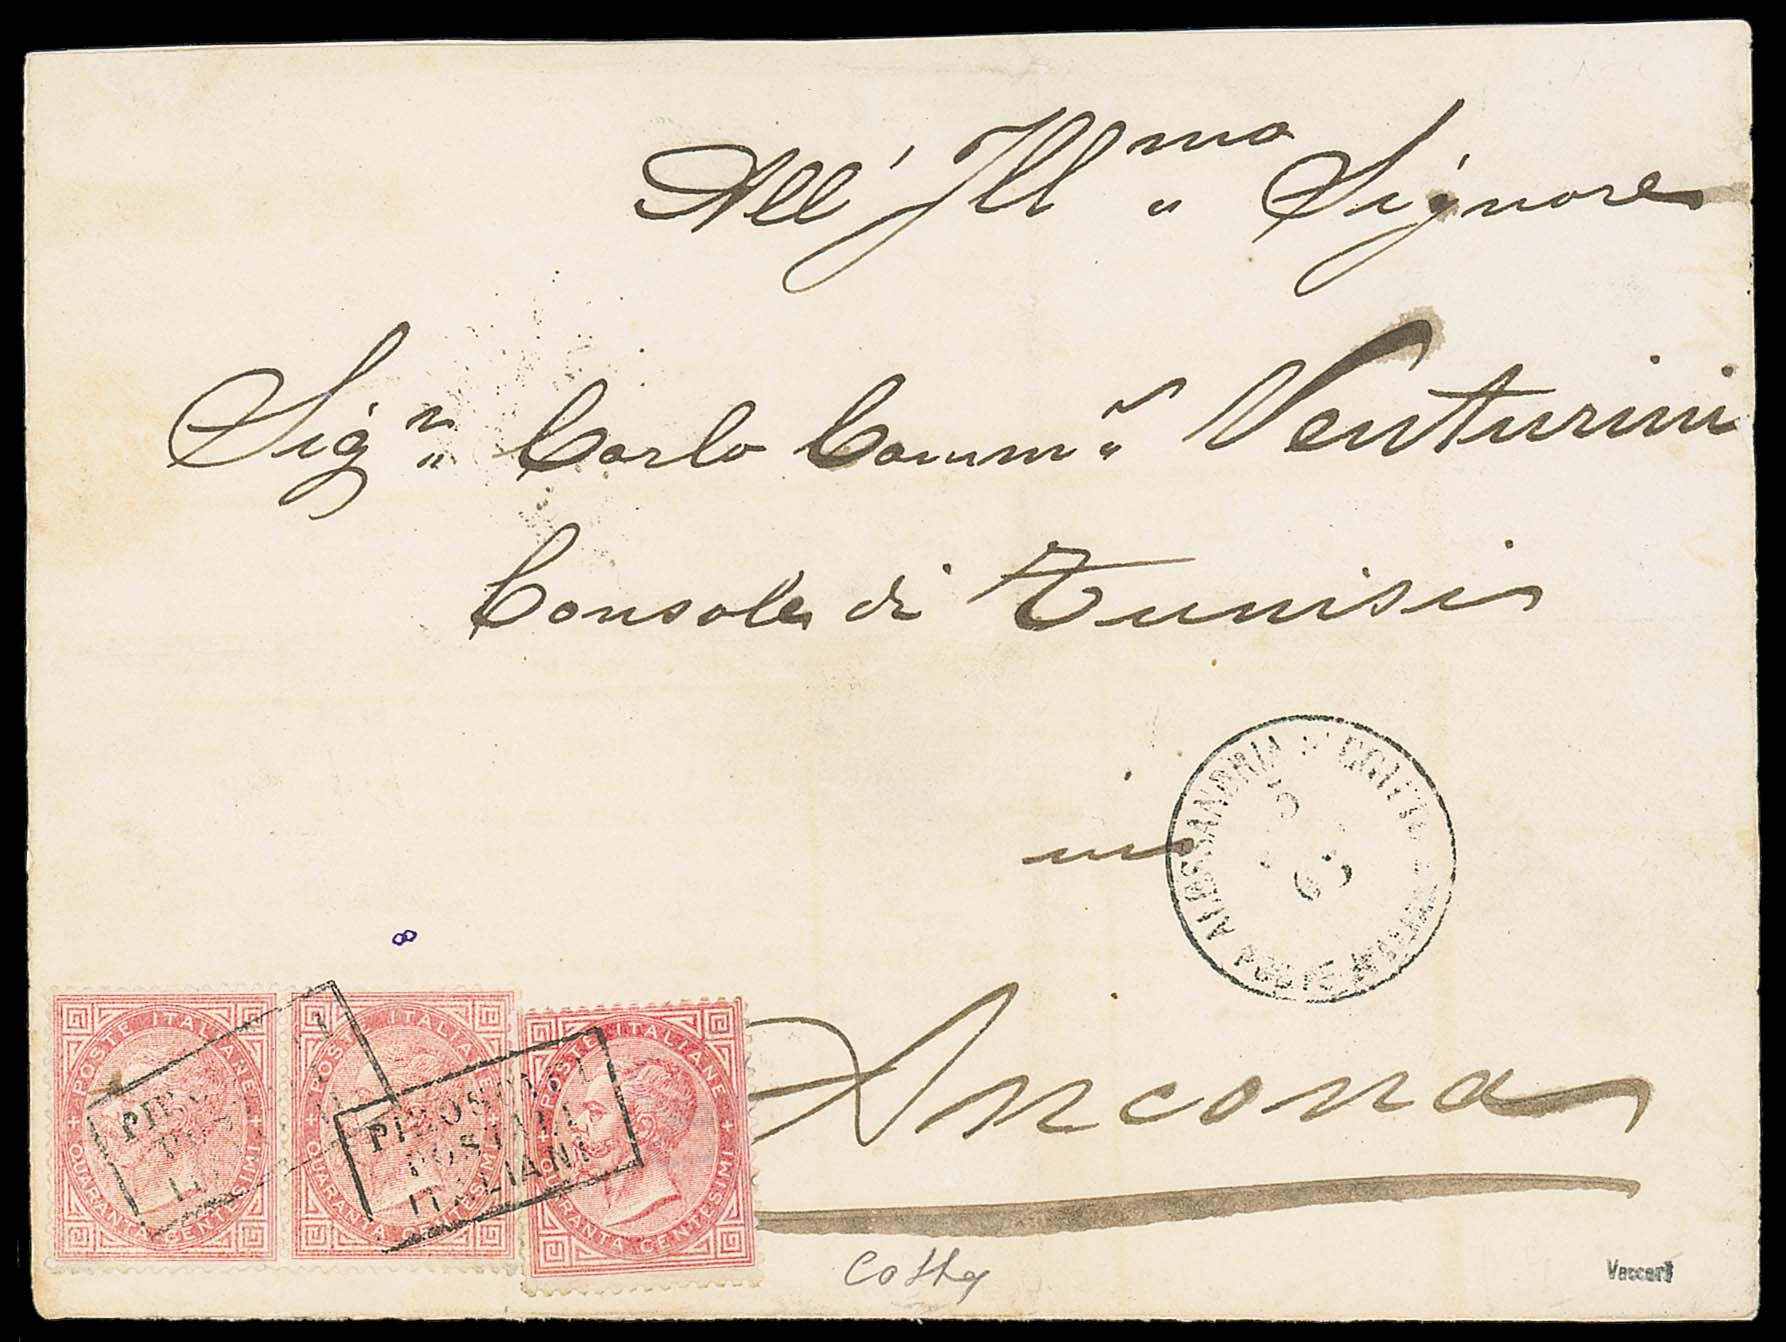 All' Ill.mo Signore
Sig.r Carlo Comm.r Venturini
Console di Tunisi
in
ALESSANDRIA D'EGITTO
5
63
POSTE ITALIANE
8
Ancona
POSTE ITALIANE
QUARANTA CENTESIMI
POSTE ITALIANE
QUARANTA CENTESIMI
POSTE ITALIANE
QUARANTA CENTESIMI
PIROSCAFI
POSTALI
ITALIANI
PIROSCAFI
POSTALI
ITALIANI
Vaccari